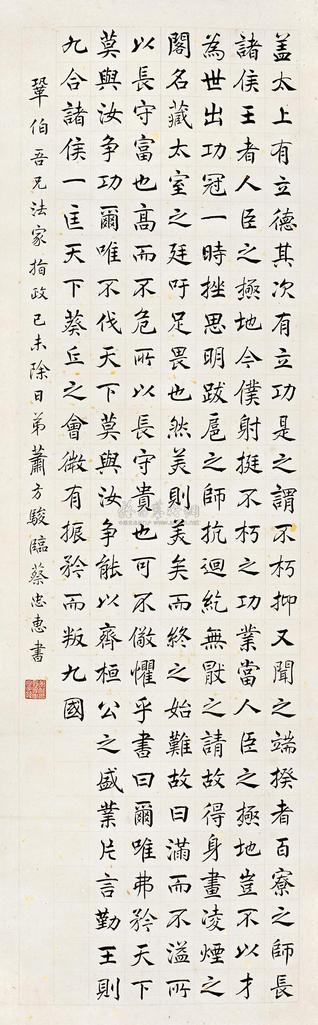 盖太上有立德其次有立功是之謂不朽抑又聞之端揆者百寮之師長
諸侯王者人臣之極地今僕射挺不朽之功業當人臣之極地豈不以才
為世出功冠一時挫思明跋扈之師抗迴紇無猒之請故得身畫凌煙之
閣名藏太室之廷吁足畏也然美則美矣而終之始難故曰滿而不溢所
以長守富也高而不危所以長守貴也可不儆懼乎書曰爾唯弗矜天下
莫與汝争功爾唯不伐天下莫與汝争能以齊桓公之盛業片言勤王則
九合諸侯一匡天下葵丘之會微有振矜而叛九國
鞏伯吾兄法家指政己未除日弟蕭方駿臨蔡忠惠書